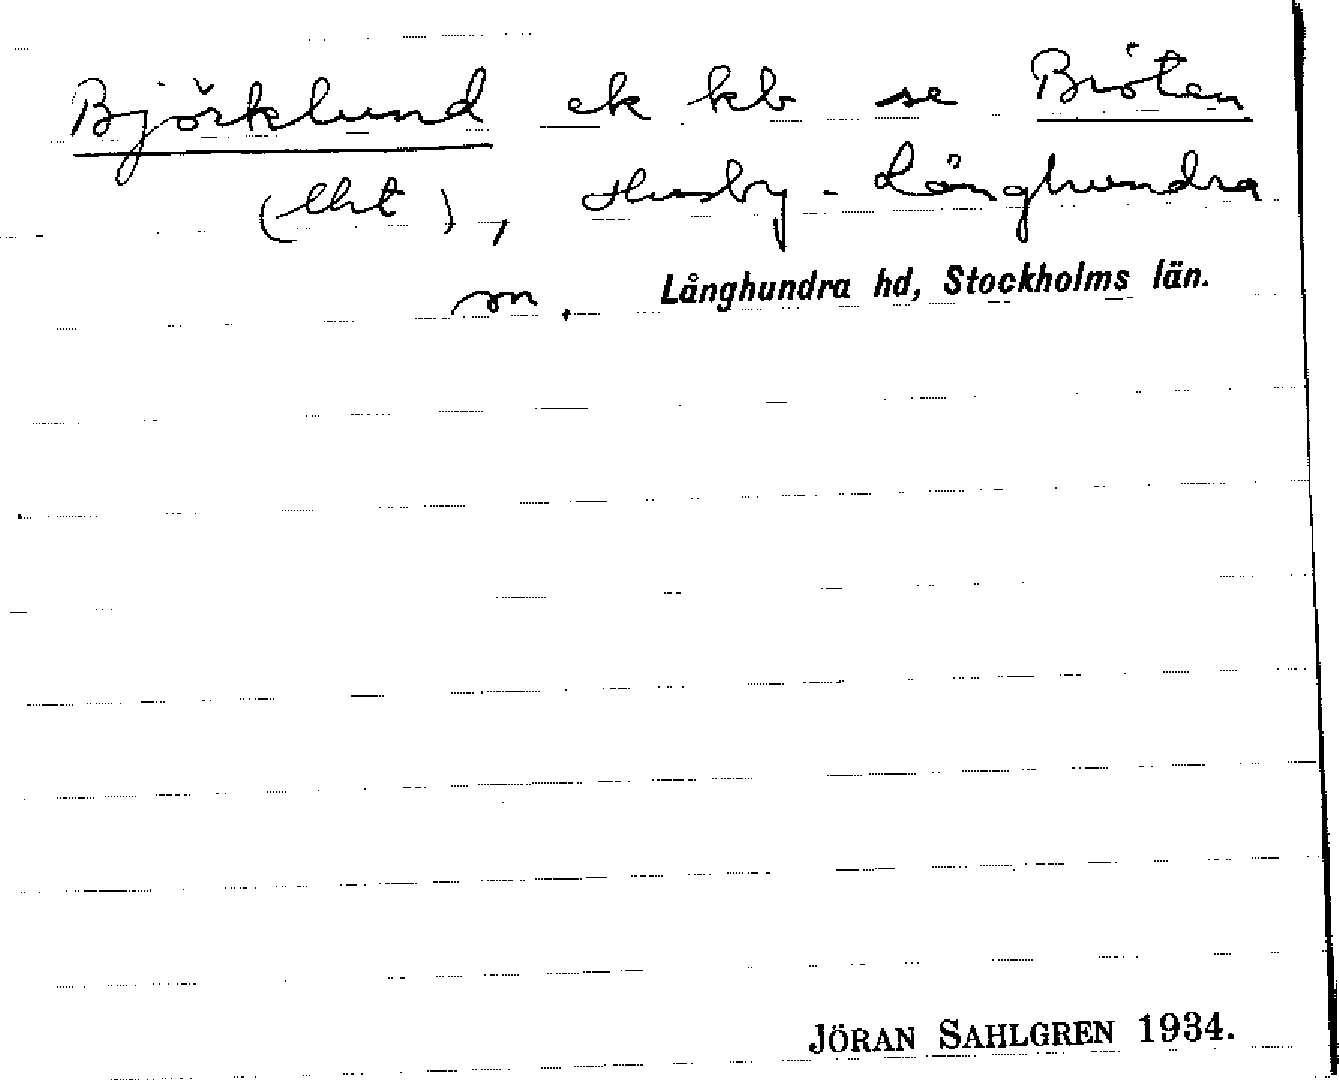 Björklund ek kb se Bröten
(lht), Husby-Långhundra
sn. Långhundra hd, Stockholms län.
JÖRAN SAHLGREN 1934.